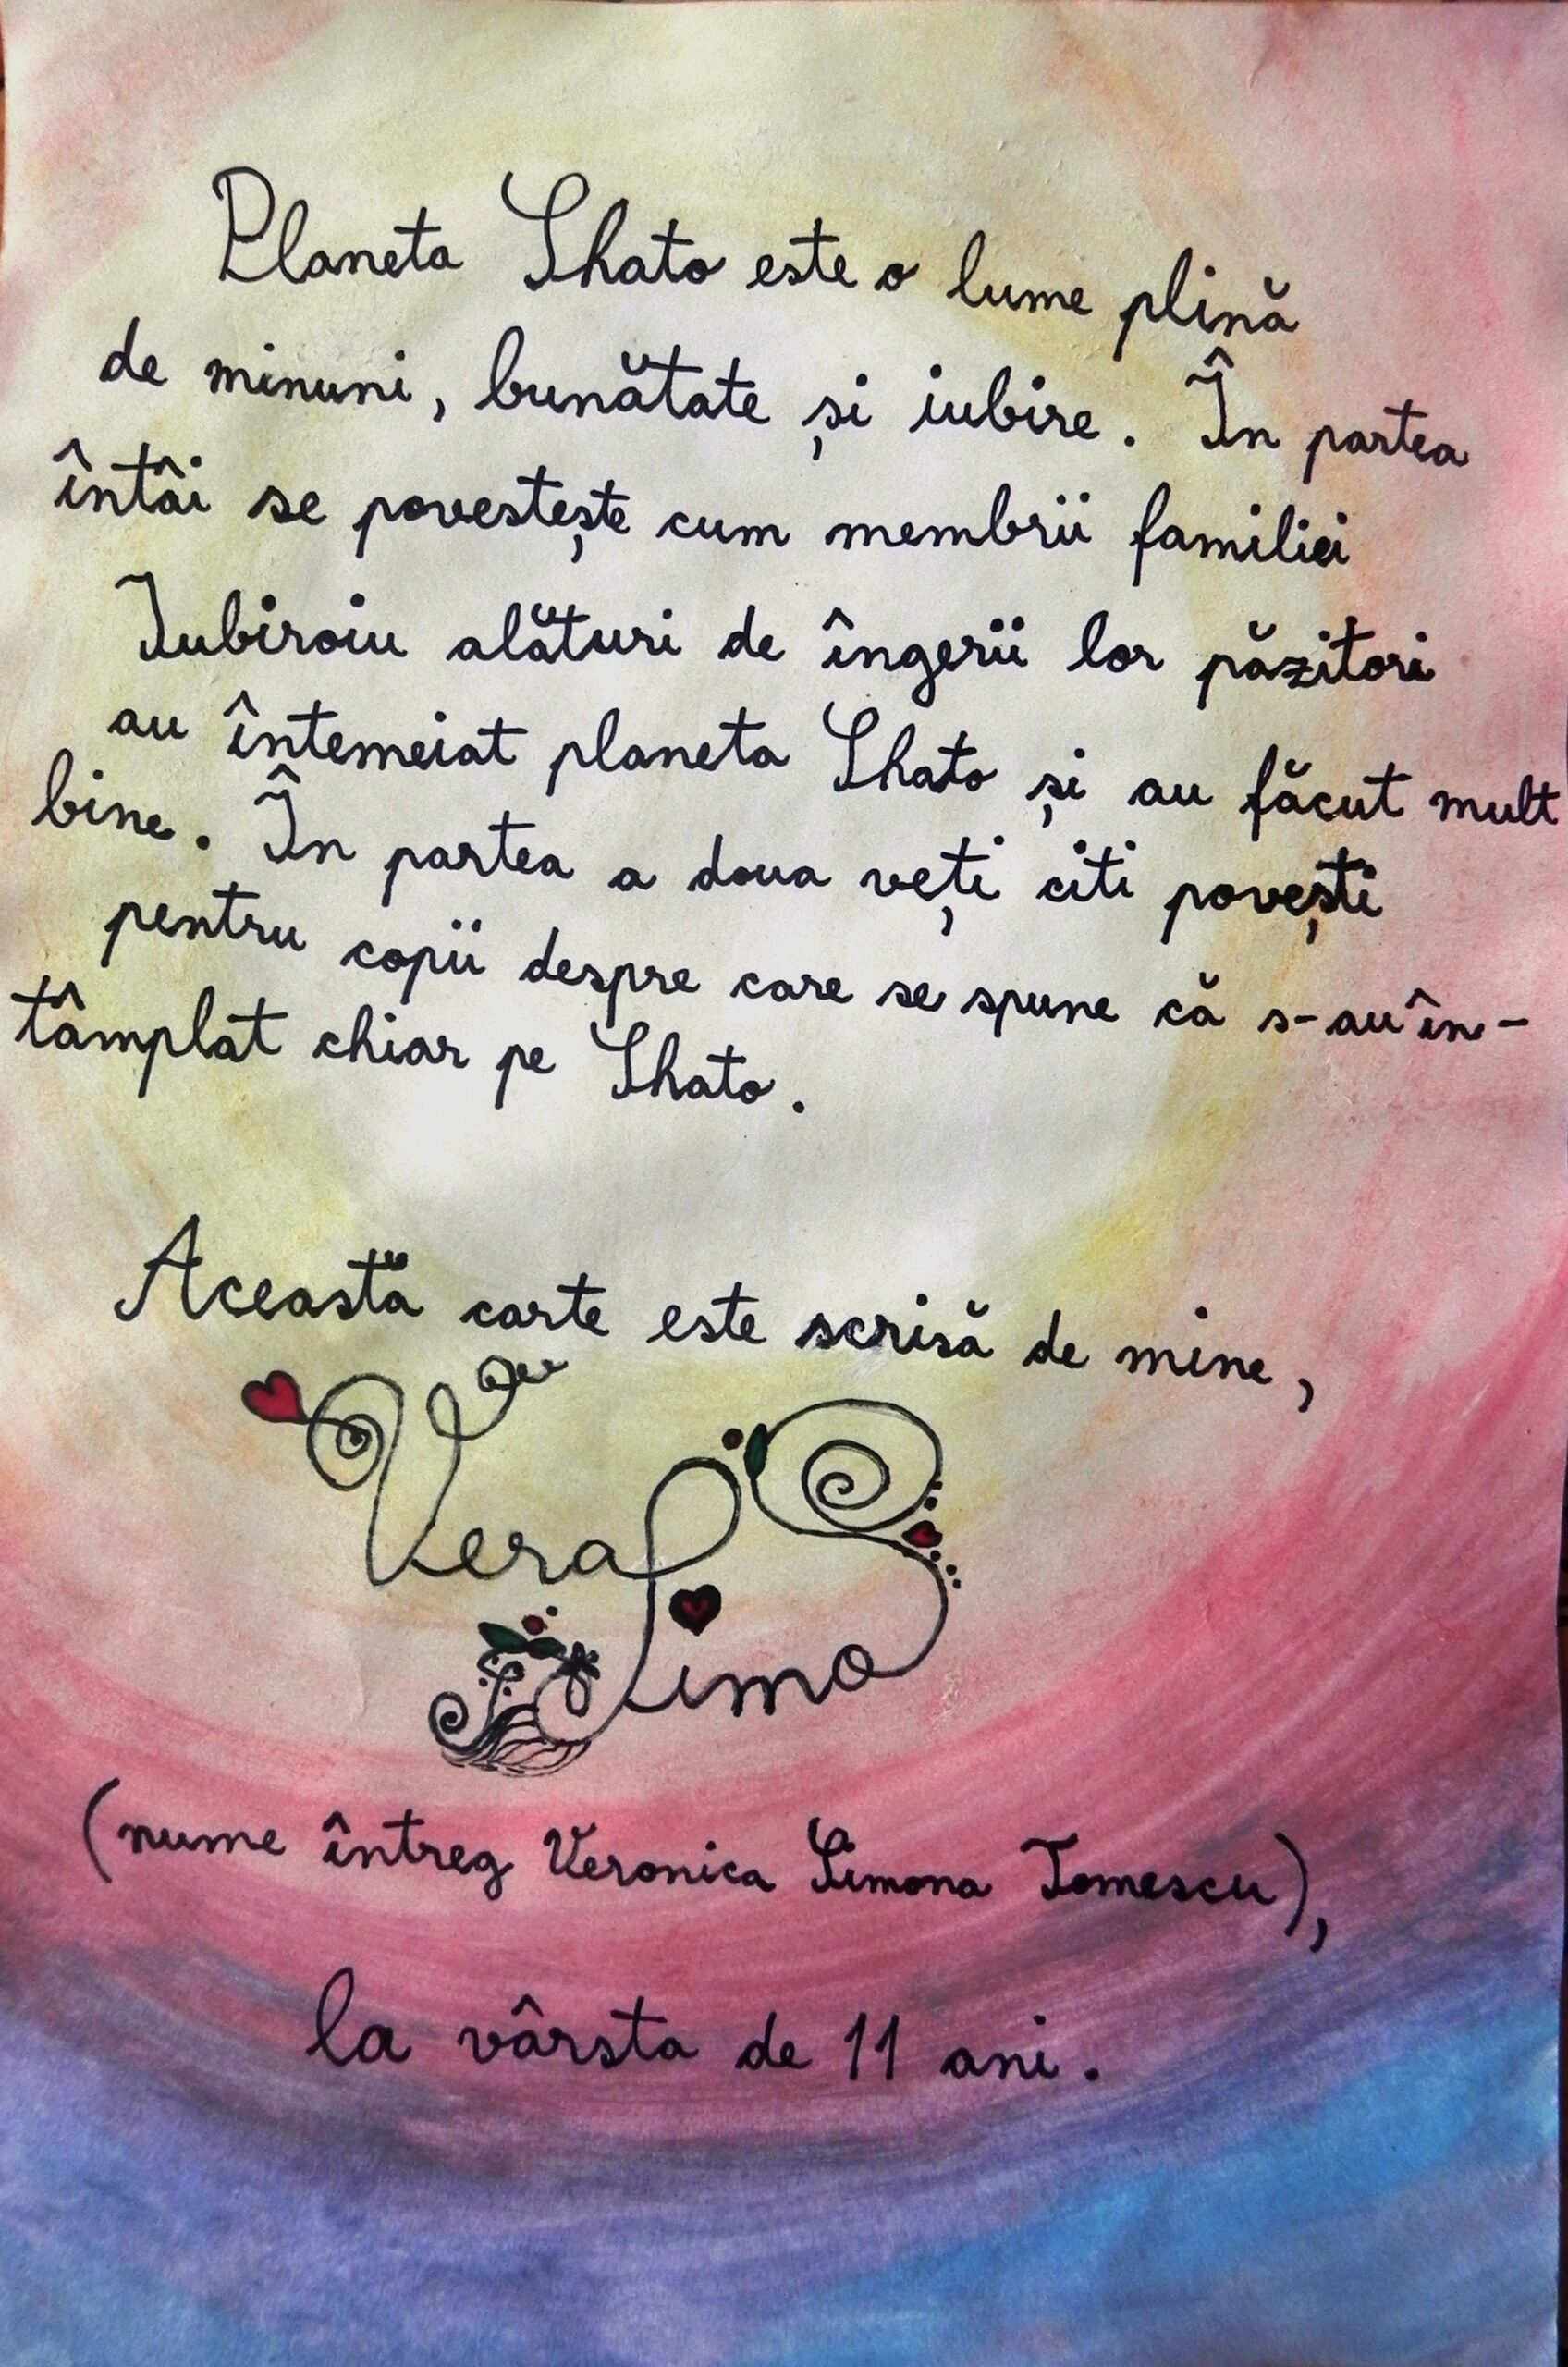 Planeta Shato este o lume plină
de minuni, bunătate și iubire. În partea
întâi se povestește cum membrii familiei
Iubiroiu alături de îngerii lor păzitori
au întemeiat planeta Shato și au făcut mult
bine. În partea a doua veți citi povești
pentru copii despre care se spune că s-au în-
tâmplat chiar pe Shato.
Această carte este scrisă de mine,
Vera
Simo
(nume întreg Veronica Simona Tomescu),
la vârsta de 11 ani.